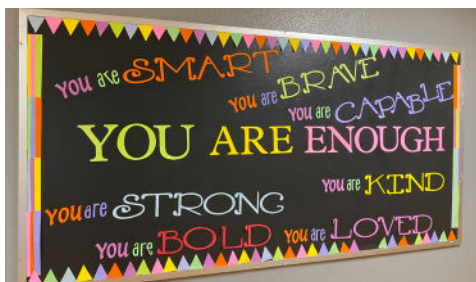 You are SMART
You are BRAVE
You are CAPABLE
YOU ARE ENOUGH
You are KIND
You are STRONG
You are BOLD
You are LOVED